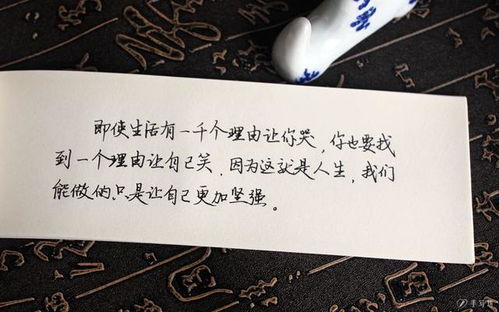 即使生活有一千个理由让你哭，你也要找
到一个理由让自己笑，因为这就是人生，我们
能做的只是让自己更加坚强。